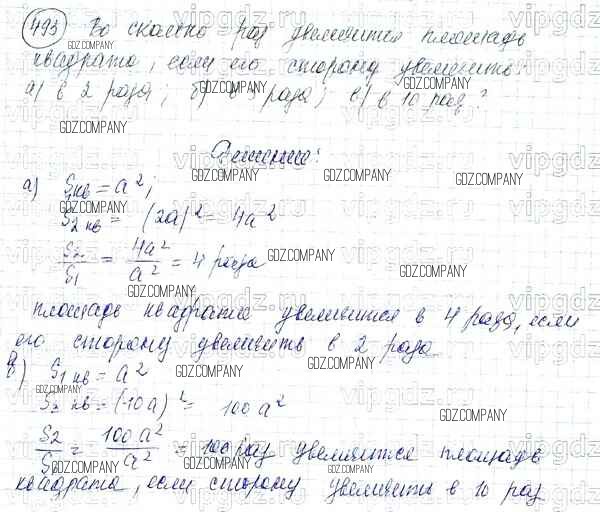 493 Во сколько раз увеличится площадь
квадрата, если его сторону увеличить:
а) в 2 раза; б) в 3 раза; в) в 10 раз?
Решение:
а) S₁ кв = a²;
S₂ кв = (2a)² = 4a²
S₂/S₁ = 4a²/a² = 4 раза
площадь квадрата увеличится в 4 раза, если
его сторону увеличить в 2 раза
в) S₁ кв = a²
S₂ кв = (10a)² = 100a²
S₂/S₁ = 100a²/a² = 100 раз увеличится площадь
квадрата, если сторону увеличить в 10 раз